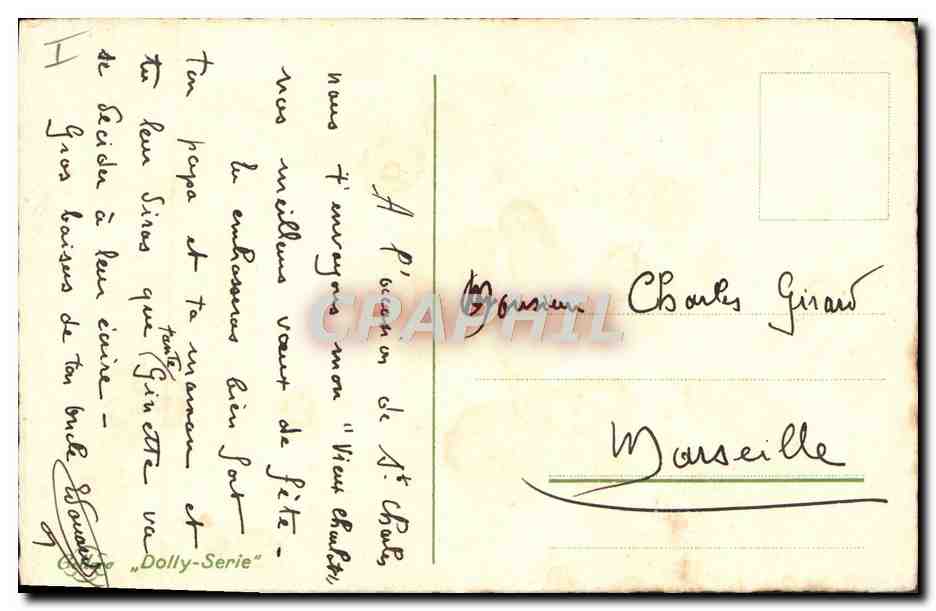 A l'occasion de St Charles
nous t'envoyons mon "Vieux Charlot",
nos meilleurs vœux de fête -
Tu embrasseras bien fort
ton papa et ta maman et
tu leur diras que tante Ginette va
se décider à leur écrire -
Gros baisers de ton oncle
Monsieur Charles Girard
Marseille
"Dolly-Serie"
CPAPHIL